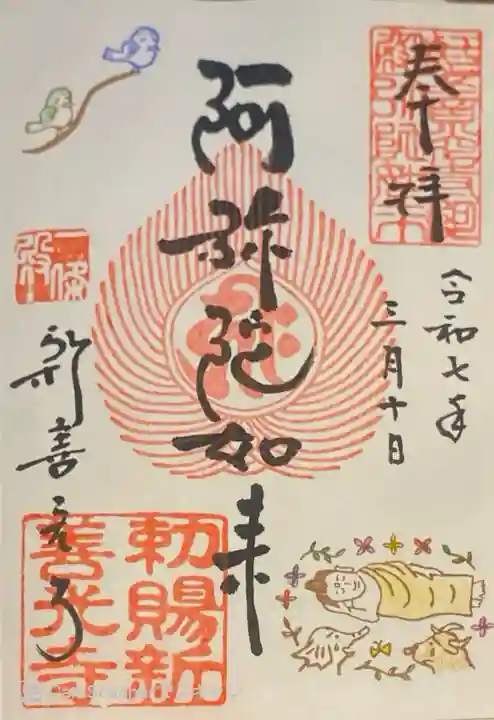 奉拝
令和七年
三月十日
阿弥陀如来
新善光寺
一條殿
勅賜新
善光寺